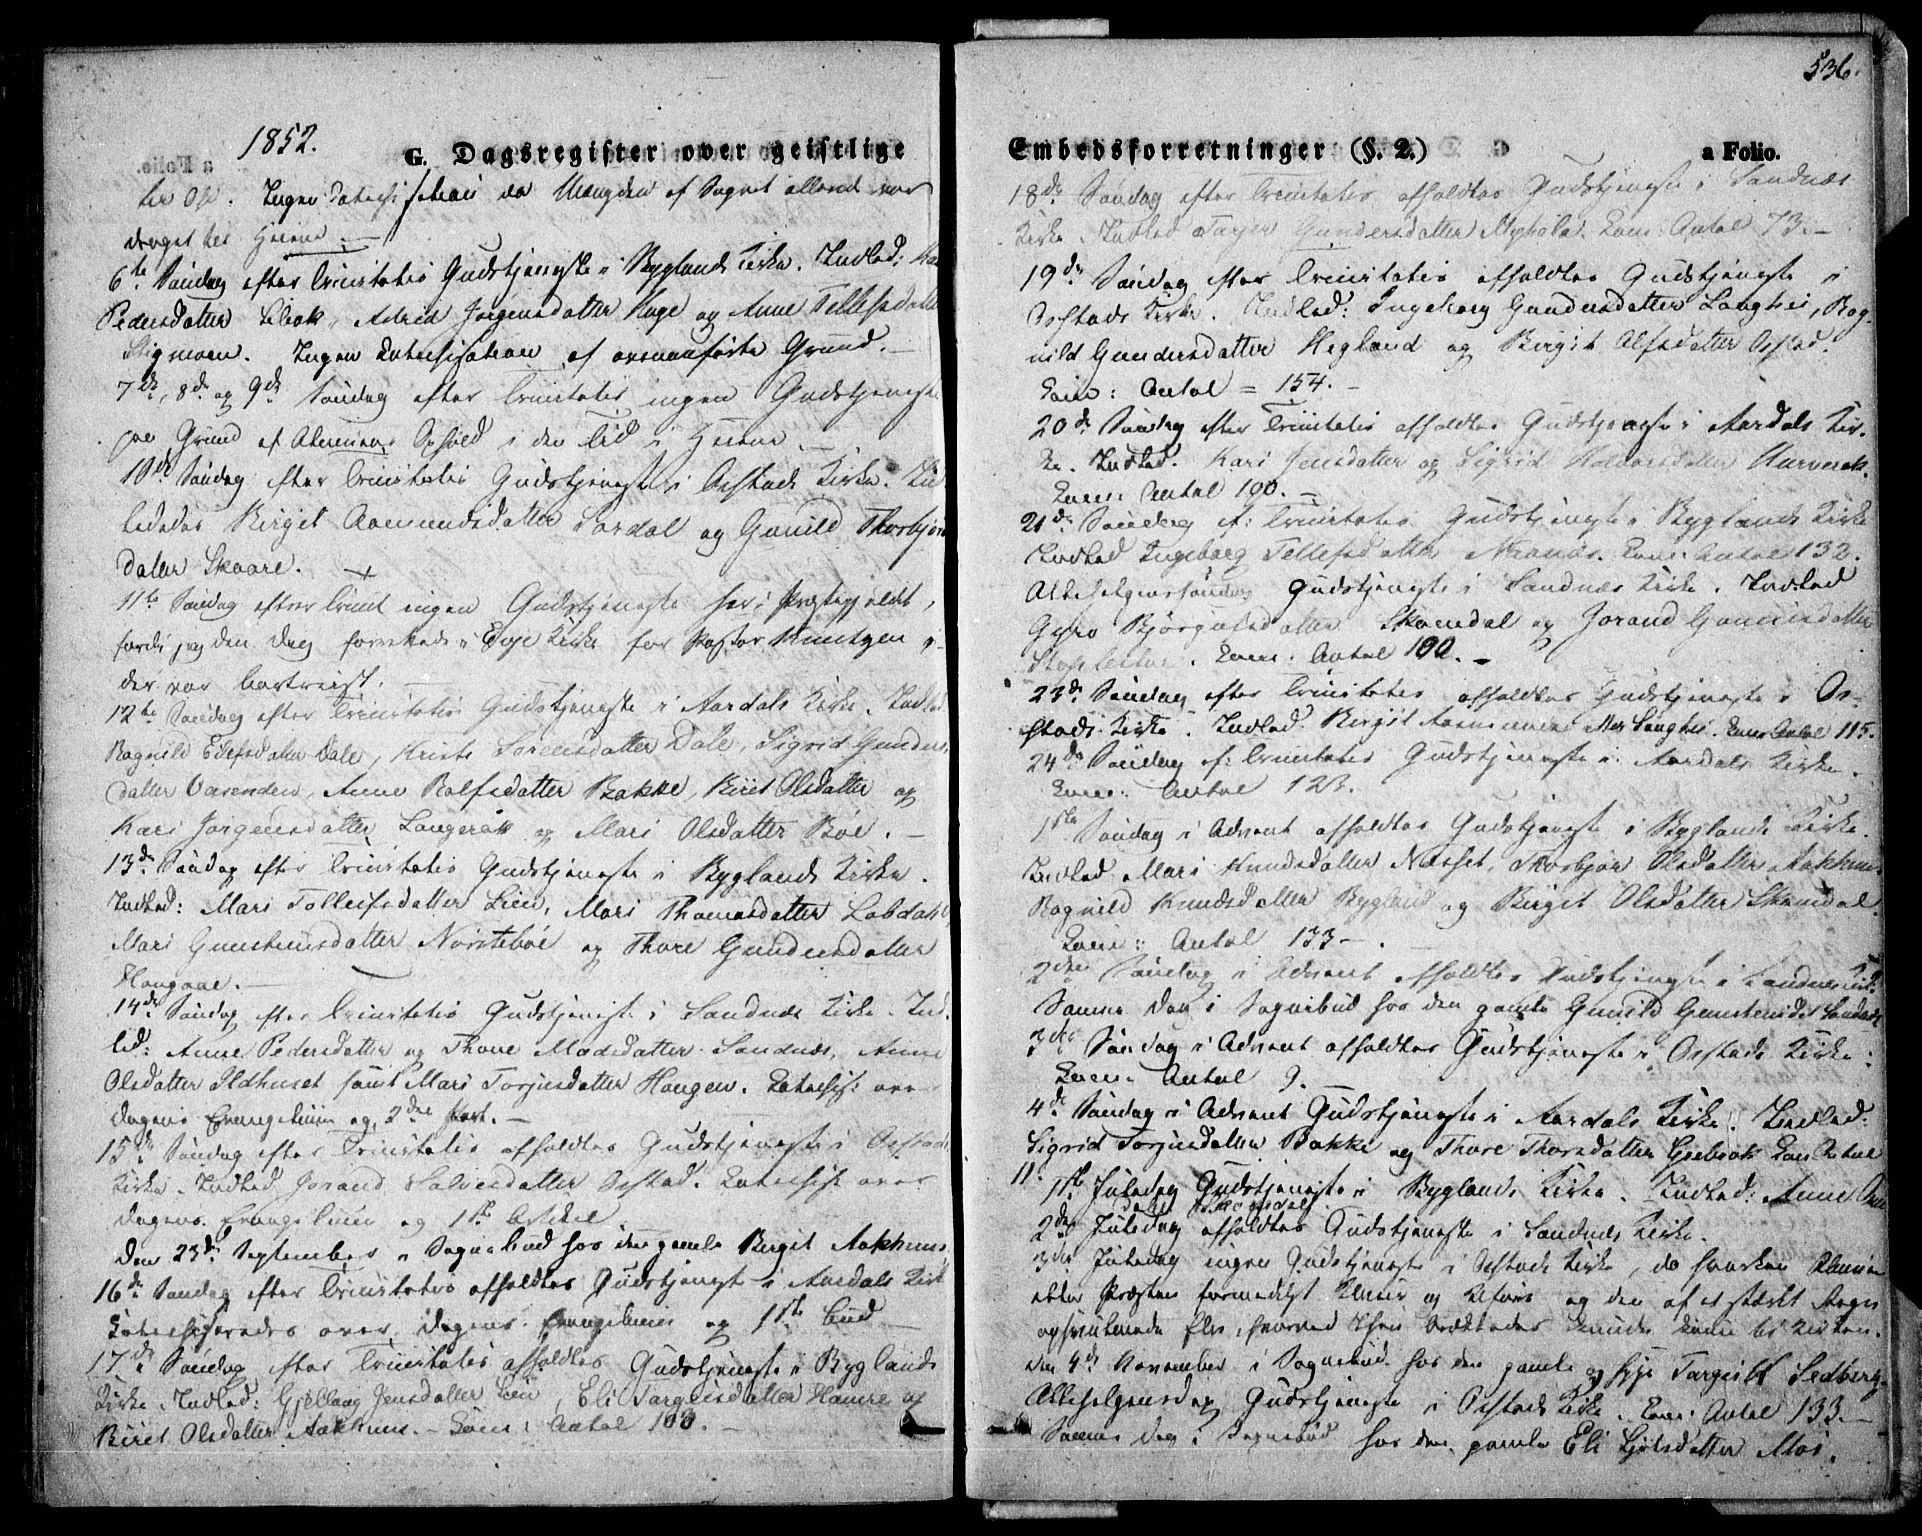 1852.
G. Dagsregister over geistlige
Ingen da Mængden af Sognet allered var
draget til Heierne. —
6te Søndag efter Trinitatis Gudstjeneste i Byglands Kirke. Indled:
Pedersdatter Astrid Jørgensdatter Hage og Anne Tellefsdatter
Stigmoen. Ingen Catechisation af ovenanførte Grund. —
7de, 8de og 9de Søndag efter Trinitatis ingen Gudstjeneste
paa Grund af Almuens Ophold i den Tid i Heierne. —
10de Søndag efter Trinitatis Gudstjeneste i Osstads Kirke. Ind-
lededes Birgit Aamundsdatter Sordal og Gunild Thorbjørns
datter Skaare. —
11te Søndag efter Trinit ingen Gudstjeneste her i Præstegjeldet,
fordi jeg den Dag forrettede i Evje Kirke for Pastor
der var bortreist. —
12te Søndag efter Trinitatis Gudstjeneste i Aardals Kirke. Indled
Ragnild Eilefsdatter Dale, Kristi Sorensdatter Dale, Sigrid Gunders
datter Varenden, Anne Rolfsdatter Bakke, Birit Olsdatter og
Kari Jørgensdatter Langerak og Mari Olsdatter Bøe. —
13de Søndag efter Trinitatis Gudstjeneste i Byglands Kirke.
Indled: Mari Tolleifsdatter Lien, Mari Thomasdatter Lobdal
Mari Gunsteinsdatter Nordtebøe og Thore Gundersdatter
Haugaae. —
14de Søndag efter Trinitatis Gudstjeneste i Sandnæs Kirke. Ind-
led: Anne Pedersdatter og Thone Madsdatter Sandnæs, Anne
Olsdatter Ildhuset samt Mari Torjusdatter Haugen. Catechis: over
Dagens Evangelium og 2den Part. —
15de Søndag efter Trinitatis afholdtes Gudstjeneste i Osstads
Kirke. Indled Jorand Salvesdatter Osstad. Catechist over
Dagens Evangelium og 1ste Artikel
Den 23de September i Sognebud hos den gamle Birgit Aakhuus.
16de Søndag efter Trinitatis afholdtes Gudstjeneste i Aardals Kirke
Catechiseredes over Dagens Evangelium og 1ste bud
17de Søndag efter Trinitatis afholdtes Gudstjeneste i Byglands
Kirke. Indled: Gjellaug Jensdatter Lien, Eli Targeisdatter Hamre og
Birit Olsdatter Aakhuus. — Com: Antal 100. —
536.
Embedsforretninger (§. 2.)
a Folio.
18de Søndag efter Trinitatis afholdtes Gudstjeneste i Sandnæs
Kirke. Indled Tarjer Gundersdatter Com: Antal 73. —
19de Søndag efter Trinitatis afholdtes Gudstjeneste i
Osstads Kirke. Indled: Ingeborg Gundersdatter Langhei, Rag-
nild Gundersdatter Hegland og Birgit Alfsdatter Osstad.
Com: Antal = 154. —
20de Søndag efter Trinitatis afholdtes Gudstjeneste i Aardals Kir-
ke. Indled. Kari Jensdatter og Sigrid Haldorsdatter
Com: Antal 100. —
21de Søndag ef: Trinitatis Gudstjeneste i Byglands Kirke
Indled Ingeborg Tellefsdatter Com: Antal 132.
Allehelgenssøndag Gudstjeneste i Sandnæs Kirke. Indled
Gyro Bjørgulsdatter Skomdal og Jorand Gunnersdatter
Com: Antal 100. —
23de Søndag efter Trinitatis afholdtes Gudstjeneste i Os-
stads Kirke. Indled Birgit Langhei. Com: Antal 115.
24de Søndag ef: Trinitatis Gudstjeneste i Aardals Kirke.
Com: Antal 123.
1ste Søndag i Advent afholdtes Gudstjeneste i Byglands Kirke.
Indled Mari Knudsdatter Næsset, Thorbjør Olsdatter Aakhuus
Ragnild Knudsdatter Bygland og Birgit Olsdatter Skomdal.
Com: Antal 133 —.
2den Søndag i Advent afholdtes Gudstjeneste i Sandnæs Kirke.
Samme Dag i Sognebud hos den gamle Gunild Gunsteinsdat Sandnæs
3die Søndag i Advent afholdtes Gudstjeneste i Osstads Kirke:
Com: Antal 9. —
4de Søndag i Advent Gudstjeneste i Aardals Kirke. Indled:
Sigrid Torjusdatter Bakke og Thore Thorsdatter Com Antal
11.
1ste Juledag Gudstjeneste i Byglands Kirke. Indled: Anne
datter Skomdal.
2den Juledag afholdtes Gudstjeneste i Sandnæs Kirke.
3die Juledag ingen Gudstjeneste i Osstads Kirke, da hverken Almuen
eller Præsten formedelst og den af et stærkt Regn
opsvulmede Elv, kunde komme til Kirken.
Den 4de November i Sognebud hos den gamle og syge Targeist Sedberg.
Allehelgensdag Gudstjeneste i Osstads Kirke. Com: Antal 133. —
Samme Dag i Sognebud hos den gamle Eli Ljotsdatter Moi.